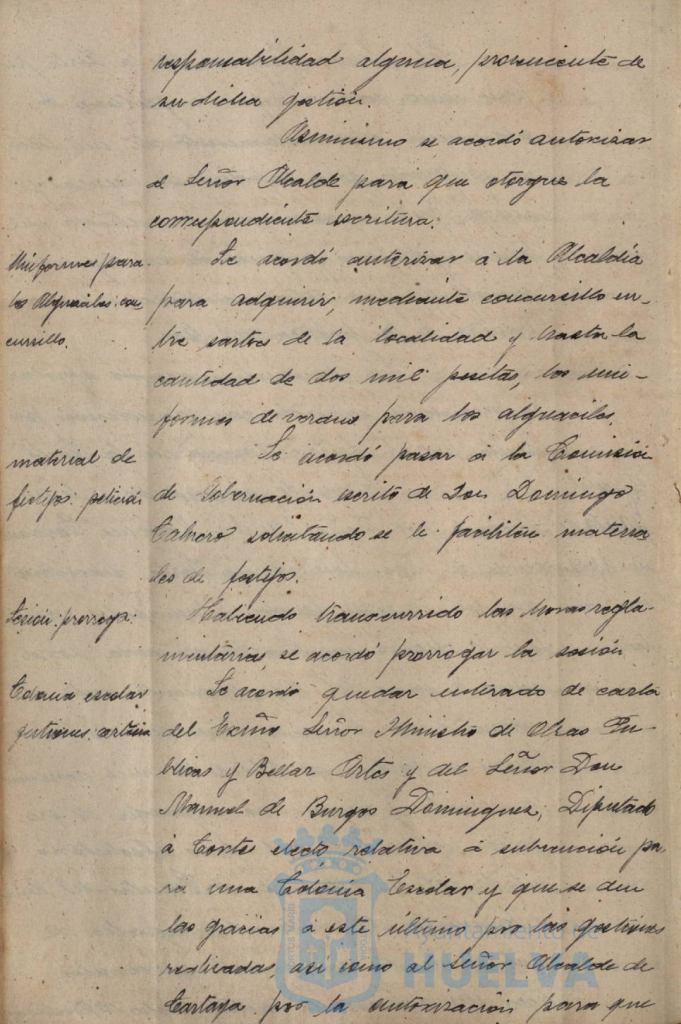 responsabilidad alguna, proveniente de
su dicha gestión.
Asimismo se acordó autorizar
al Señor Alcalde para que otorgue la
correspondiente escritura.
Uniformes para
los Alguaciles: con
cursillo.
Se acordó autorizar á la Alcaldía
para adquirir, mediante concursillo en-
tre sastres de la localidad y hasta la
cantidad de dos mil pesetas, los uni-
formes de verano para los alguaciles.
material de
festejos: petición
Se acordó pasar á la Comisión
de Gobernación escrito de Don Domingo
solicitando se le faciliten materia
les de festejos.
Sesión: prorroga:
Habiendo transcurrido las horas regla-
mentarias, se acordó prorrogar la sesión
Colonia escolar
gestiones:
Se acordó quedar enterado de carta
del Excmo Señor Ministro de Obras Pú-
blicas y Bellas Artes y del Señor Don
Manuel de Burgos Dominguez, Diputado
á Cortes electo relativa á subvención pa
ra una Colonia Escolar y que se den
las gracias á este último por las gestiones
realizadas, así como al Señor Alcalde de
Cartaya por la autorización para que
HUELVA